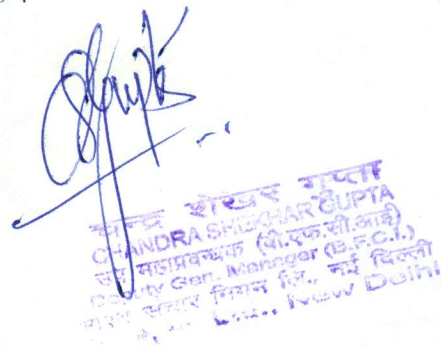 चन्द्र शेखर गुप्ता
CHANDRA SHEKHAR GUPTA
उप महाप्रबन्धक (बी.एफ.सी.आई)
Deputy Gen. Manager (B.F.C.I.)
संचार निगम लि., नई दिल्ली
Ltd., New Delhi